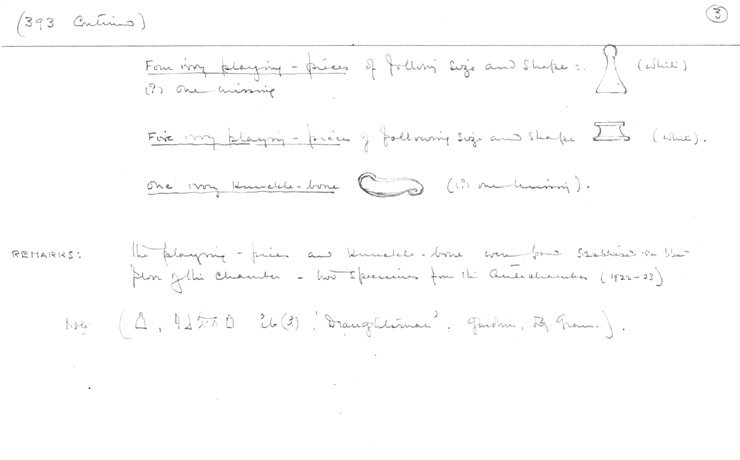 (393 Continued)
3
Four ivory playing-pieces of following size and shape:. (white)
(?) one missing
Five ivory playing-pieces of following size and shape (white).
One ivory knuckle-bone ((?) one missing).
REMARKS: The playing-pieces and knuckle-bone were found scattered on the
floor of this chamber - two specimens from the Antechamber (1922-23)
Note ( 26(3), 'Draughtsman', Gardiner, Eg. Gram.).